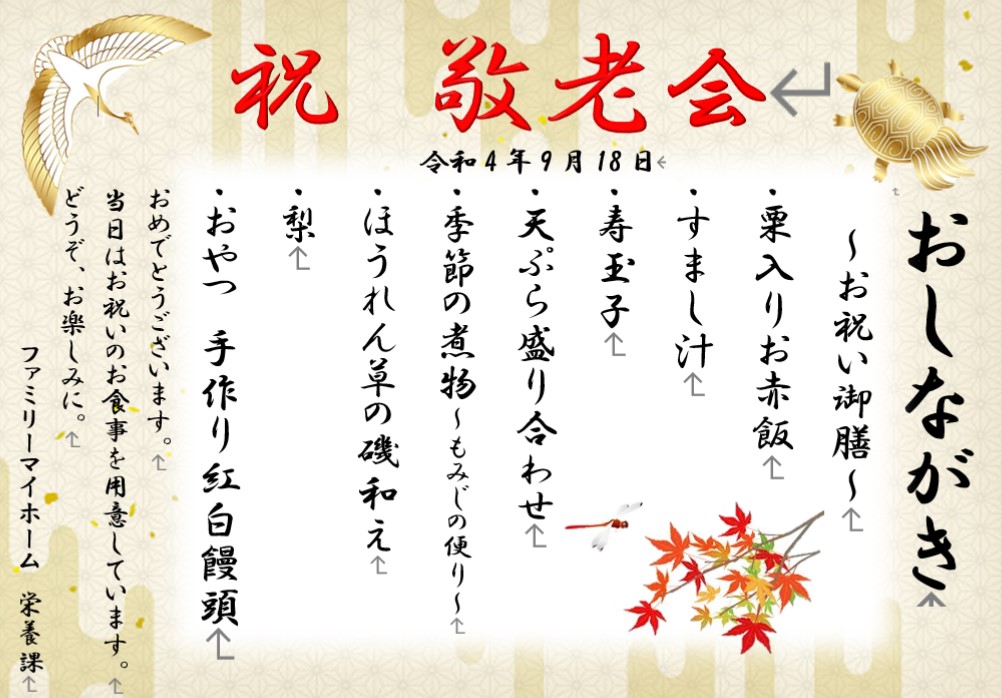 祝　敬老会
令和4年9月18日
おしながき
～お祝い御膳～
・栗入りお赤飯
・すまし汁
・寿玉子
・天ぷら盛り合わせ
・季節の煮物～もみじの便り～
・ほうれん草の磯和え
・梨
・おやつ　手作り紅白饅頭
おめでとうございます。
当日はお祝いのお食事を用意しています。
どうぞ、お楽しみに。
ファミリーマイホーム　栄養課